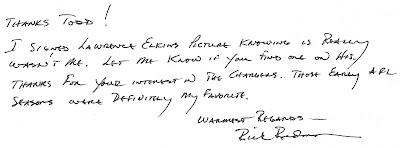 THANKS TODD!
I SIGNED LAWRENCE ELKINS PICTURE KNOWING IS REALLY
WASN'T ME. LET ME KNOW IF YOU FIND ONE OR HIS.
THANKS FOR YOUR INTEREST IN THE CHARGERS. THOSE EARLY AFL
SEASONS WERE DEFINITELY MY FAVORITE.
WARMEST REGARDS —
Rick Redman